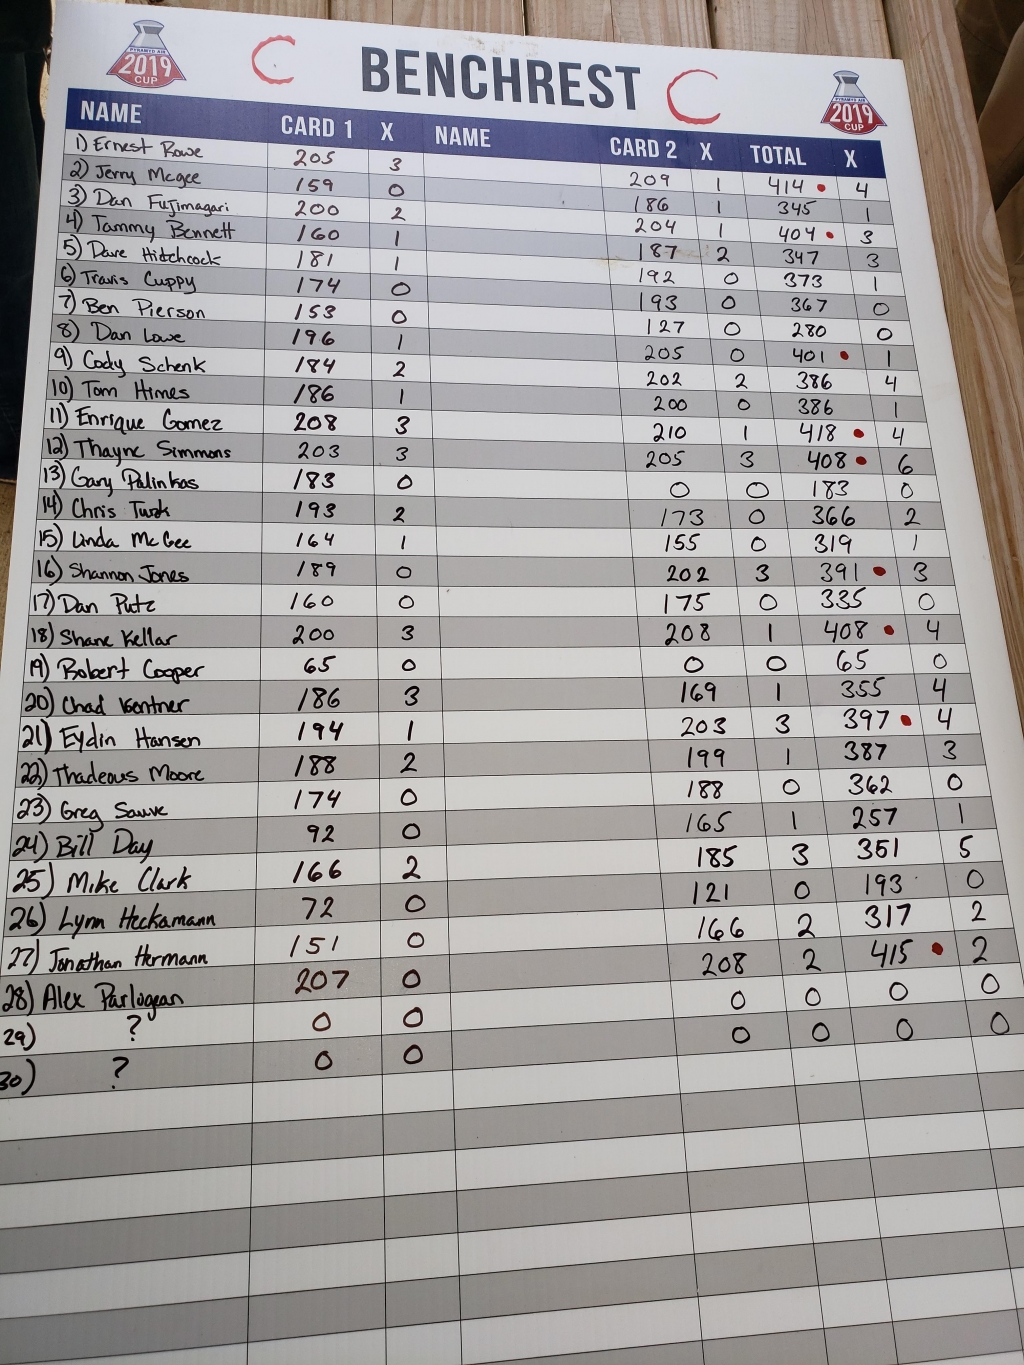 PYRAMYD AIR
2019
CUP
C BENCHREST C
PYRAMYD AIR
2019
CUP
NAME CARD 1 X NAME CARD 2 X TOTAL X
1) Ernest Rowe 205 3 209 1 414 4
2) Jerry Mcgee 159 0 186 1 345 1
3) Dan Fujimagari 200 2 204 1 404 3
4) Tammy Bennett 160 1 187 2 347 3
5) Dave Hitchcock 181 1 192 0 373 1
6) Travis Cuppy 174 0 193 0 367 0
7) Ben Pierson 153 0 127 0 280 0
8) Dan Lowe 196 1 205 0 401 1
9) Cody Schenk 184 2 202 2 386 4
10) Tom Himes 186 1 200 0 386 1
11) Enrique Gomez 208 3 210 1 418 4
12) Thayne Simmons 203 3 205 3 408 6
13) Gary Palinkas 183 0 0 0 183 0
14) Chris Turk 193 2 173 0 366 2
15) Linda McGee 164 1 155 0 319 1
16) Shannon Jones 189 0 202 3 391 3
17) Dan Putz 160 0 175 0 335 0
18) Shane Kellar 200 3 208 1 408 4
19) Robert Cooper 65 0 0 0 65 0
20) Chad Kentner 186 3 169 1 355 4
21) Eydin Hansen 194 1 203 3 397 4
22) Thadeous Moore 188 2 199 1 387 3
23) Greg Sauve 174 0 188 0 362 0
24) Bill Day 92 0 165 1 257 1
25) Mike Clark 166 2 185 3 351 5
26) Lynn Heckamann 72 0 121 0 193 0
27) Jonathan Hermann 151 0 166 2 317 2
28) Alex Parlogean 207 0 208 2 415 2
29) ? 0 0 0 0 0 0
30) ? 0 0 0 0 0 0